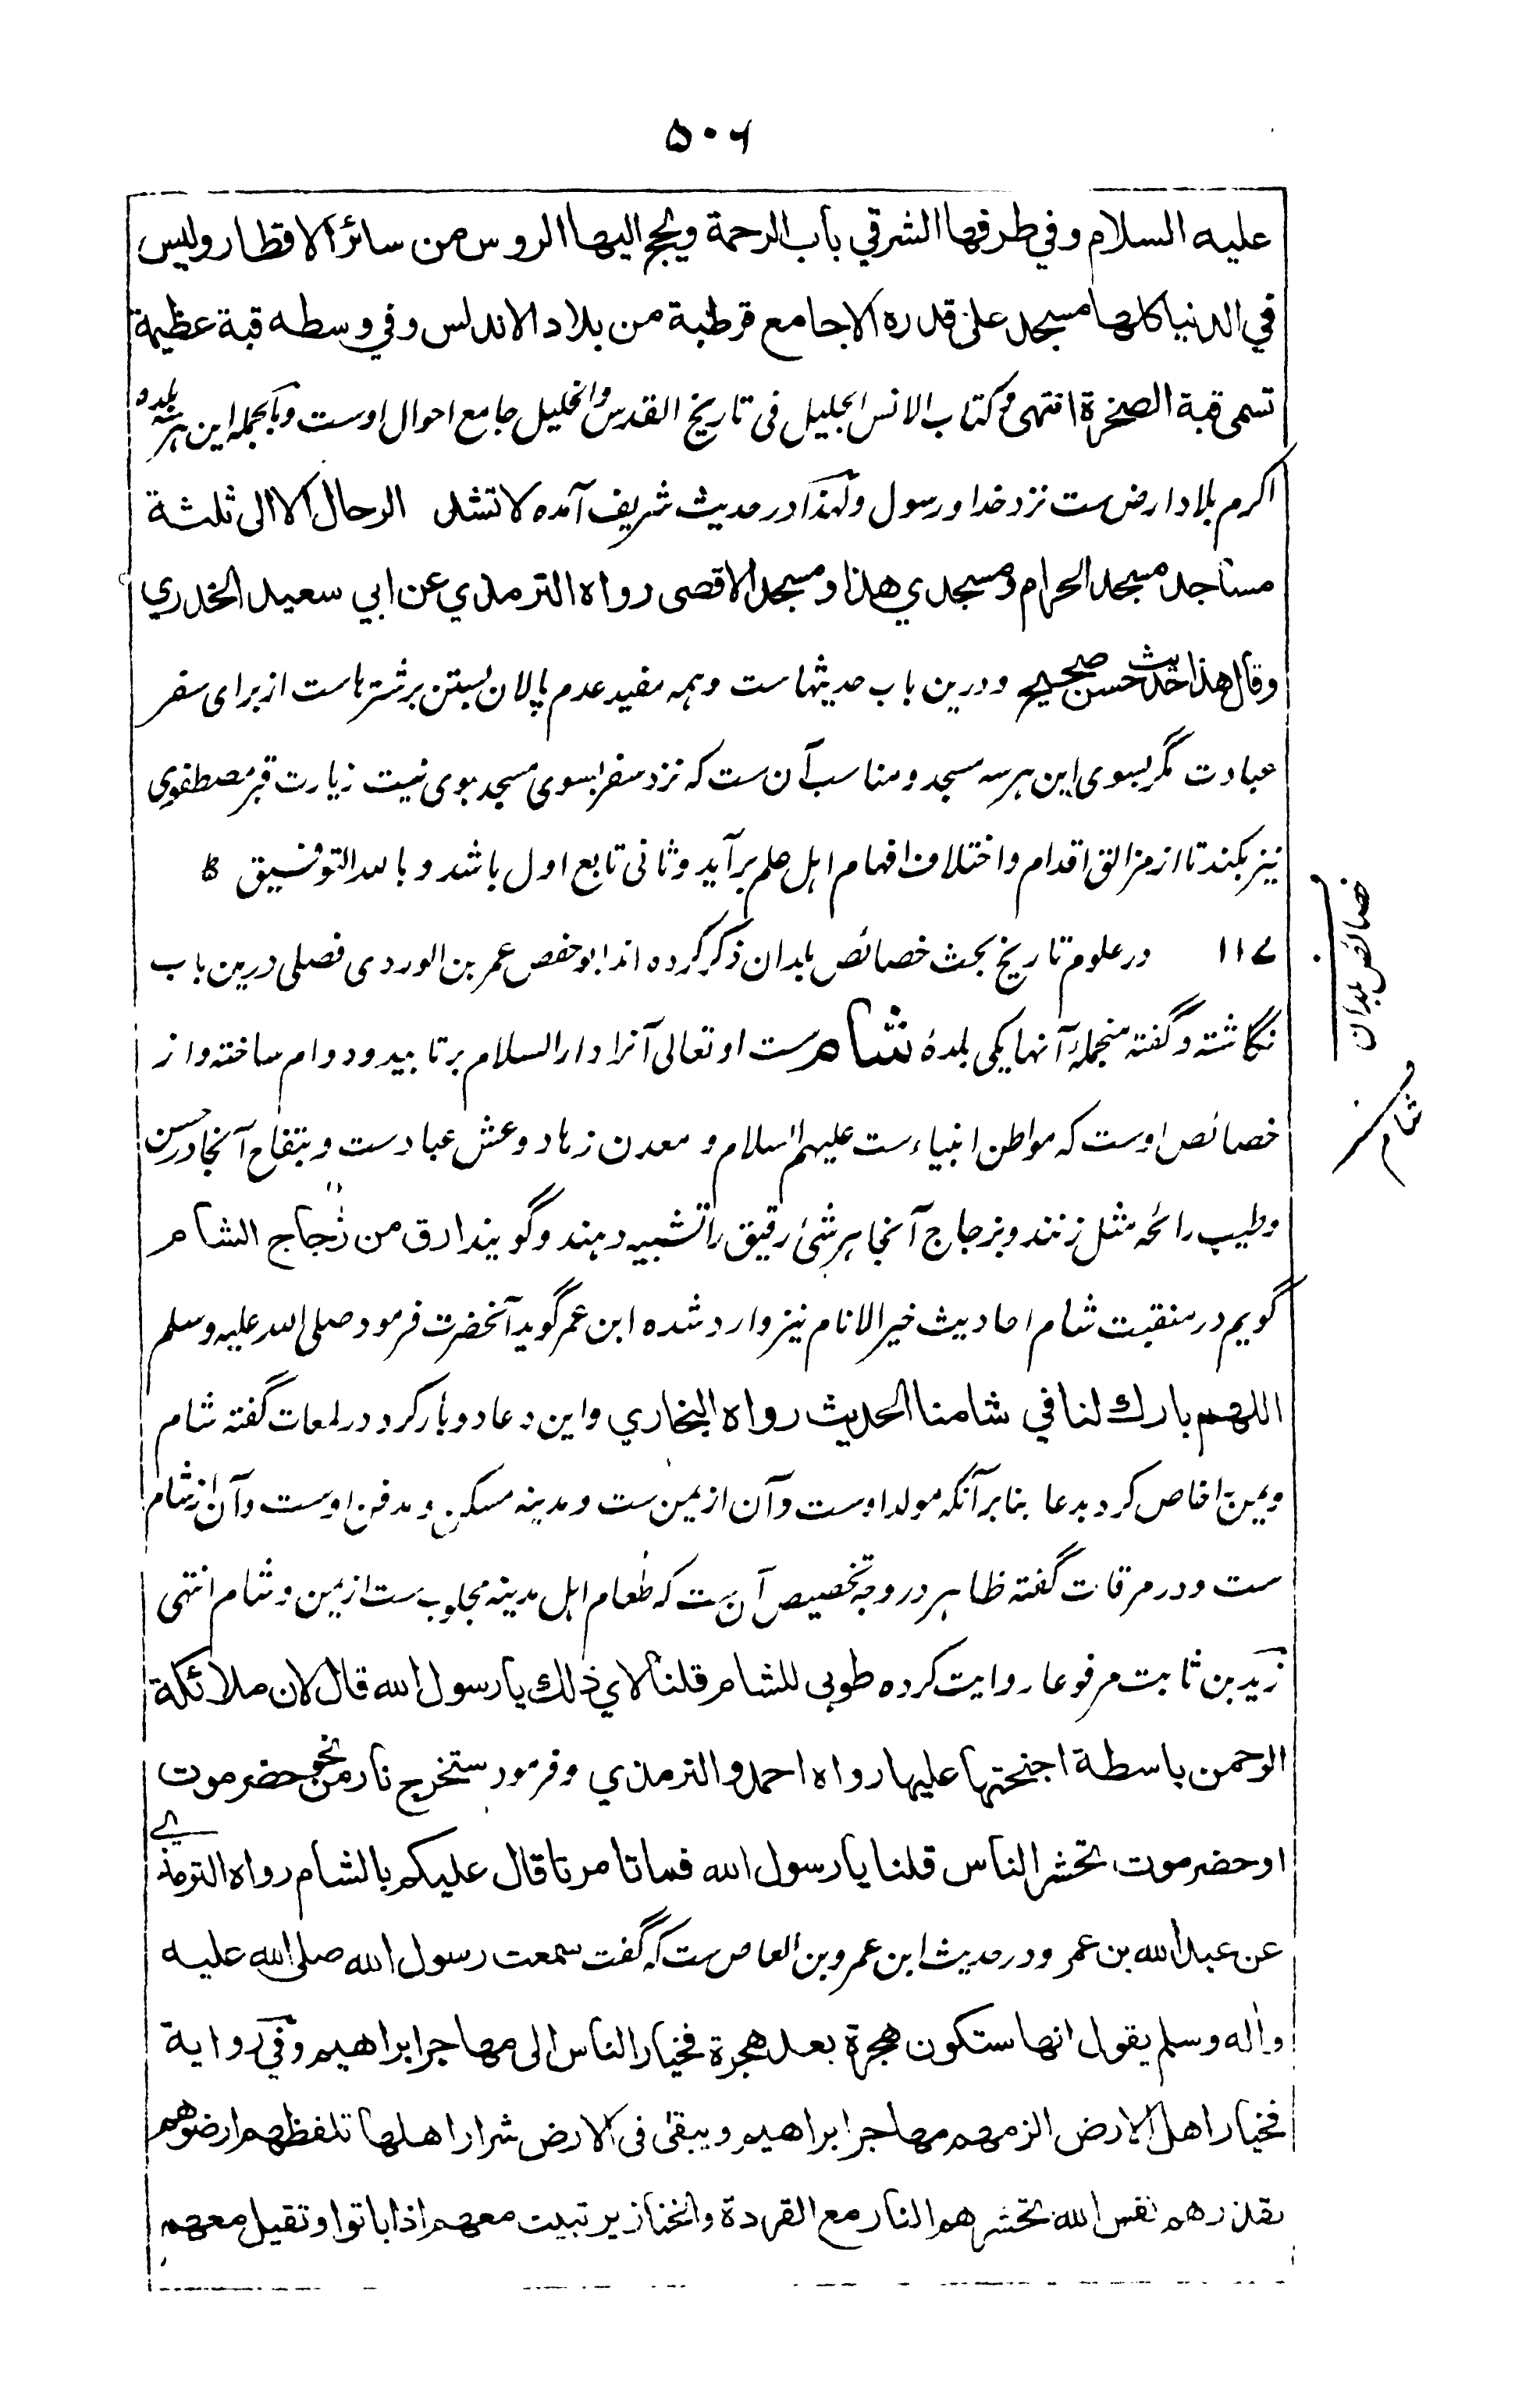 ۵۰۶
علیه السلام وفي طرفها الشرقي باب الرحمة ويحج اليها الروس من سائر الاقطار وليس
في الدنيا كلها مسجد على قدره الا جامع قرطبة من بلاد الاندلس وفي وسطه قبة عظيمة
تسمى قبة الصخرة انتهى و کتاب الانس الجلیل فی تاریخ القدس والخلیل جامع احوال اوست وبالجمله این هر سه بلده
اکرم بلاد ارض ست نزد خدا و رسول ولهذا در حدیث شریف آمده لا تشد الرحال الا الى ثلثة
مساجد مسجد الحرام ومسجدي هذا ومسجد الاقصى رواه الترمذي عن ابي سعيد الخدري
وقال هذا حدیث حسن صحیح و درین باب حدیثهاست و همه مفید عدم پالان بستن بر شترهاست از برای سفر
عبادت مگر بسوی این هر سه مسجد و مناسب آن ست که نزد سفر بسوی مسجد نبوی نیت زیارت قبر مصطفوی
نیز بکند تا از مزالق اقدام و اختلاف افهام اهل علم برآید و ثانی تابع اول باشد و بالله التوفیق
۱۱۷ در علوم تاریخ بحث خصائص بلدان ذکر کرده اند ابو حفص عمر بن الوردی فصلی درین باب
نگاشته و گفته منجملهٔ آنها یکی بلدهٔ شام ست او تعالی آنرا دار السلام بر تابید و دوام ساخته و از
خصائص اوست که مواطن انبیاء ست علیهم السلام و معدن زهاد و عش عباد ست و بتفاح آنجا در حسن
وطیب رائحه مثل زنند و بزجاج آنجا هر شئ رقیق را تشبیه دهند و گویند ارق من زجاج الشام
گویم در منقبت شام احادیث خیر الانام نیز وارد شده ابن عمر گوید آنحضرت فرمود صلی الله علیه وسلم
اللهم بارك لنا في شامنا الحديث رواه البخاري و این دعا دو بار کرد در لمعات گفته شام
و یمن را خاص کرد بدعا بنا بر آنکه مولد اوست و آن از یمن ست و مدینه مسکن و مدفن اوست و آن از شام
ست و در مرقات گفته ظاهر در وجه تخصیص آن ست که طعام اهل مدینه مجلوب ست از یمن و شام انتهی
زید بن ثابت مرفوعا روایت کرده طوبى للشام قلنا لاي ذلك يا رسول الله قال لان ملائكة
الرحمن باسطة اجنحتها عليها رواه احمد والترمذي و فرمود ستخرج نار من نحو حضرموت
او حضرموت تحشر الناس قلنا يا رسول الله فما تأمرنا قال عليكم بالشام رواه الترمذي
عن عبد الله بن عمر و در حدیث ابن عمرو بن العاص ست که گفت سمعت رسول الله صلى الله عليه
واله وسلم يقول انها ستكون هجرة بعد هجرة فخيار الناس الى مهاجر ابراهيم وفي رواية
فخيار اهل الارض الزمهم مهاجر ابراهيم ويبقى في الارض شرار اهلها تلفظهم ارضوهم
تقذرهم نفس الله تحشرهم النار مع القردة والخنازير تبيت معهم اذا باتوا وتقيل معهم
خصائص بلدان
شام